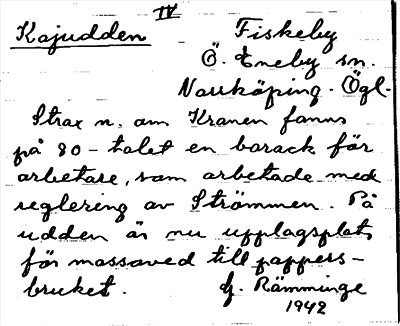 IV
Kajudden
Fiskeby
Ö. Eneby sn.
Norrköping. Ögl.
Strax n. om Kranen fanns
på 80-talet en barack för
arbetare, som arbetade med
reglering av Strömmen. På
udden är nu upplagsplats
för massaved till pappers-
bruket.
Hj. Rämminge
1942